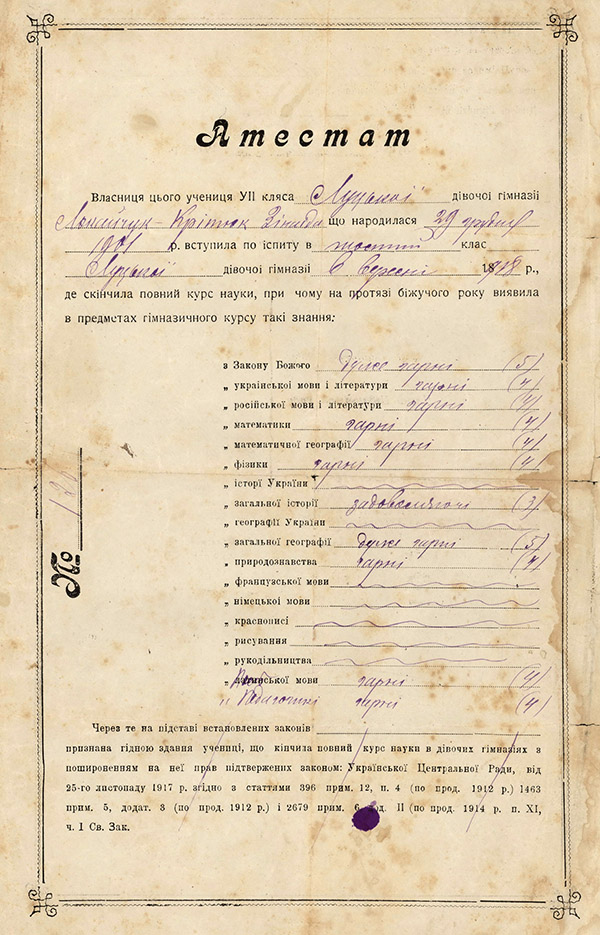 Атестат
Власниця цього учениця УІІ кляса Луцької дівочої гімназії
Кріпюк Зінаїда що народилася 29 грудня
1901 р. вступила по іспиту в шостий клас
Луцької дівочої гімназії в Вересні 1918 р.,
де скінчила повний курс науки, при чому на протязі біжучого року виявила
в предметах гімназичного курсу такі знання:
з Закону Божого дуже гарні (5)
„ української мови і літератури гарні (4)
„ російської мови і літератури гарні (4)
„ математики гарні (4)
„ математичної географії гарні (4)
„ фізики гарні (4)
„ історї України
„ загальної історії задовольняючі (3)
„ географії України
„ загальної географії дуже гарні (5)
„ природознавства гарні (4)
„ французської мови
„ німецької мови
„ краснописі
„ рисування
„ рукодільництва
„ мови гарні (4)
„ Педагогики гарні (4)
№ 1
Через те на підставі встановлених законів
признана гідною здання учениці, що кінчила повний курс науки в дівочих гімназіях з
пошироненням на неї прав підтвержених законом: Української Центральної Ради, від
25-го листопаду 1917 р. згідно з статтями 396 прим. 12, п. 4 (по прод. 1912 р.) 1463
прим. 5, додат. 3 (по прод. 1912 р.) і 2679 прим. 6 дод. ІІ (по прод. 1914 р. п. ХІ,
ч. І Св. Зак.